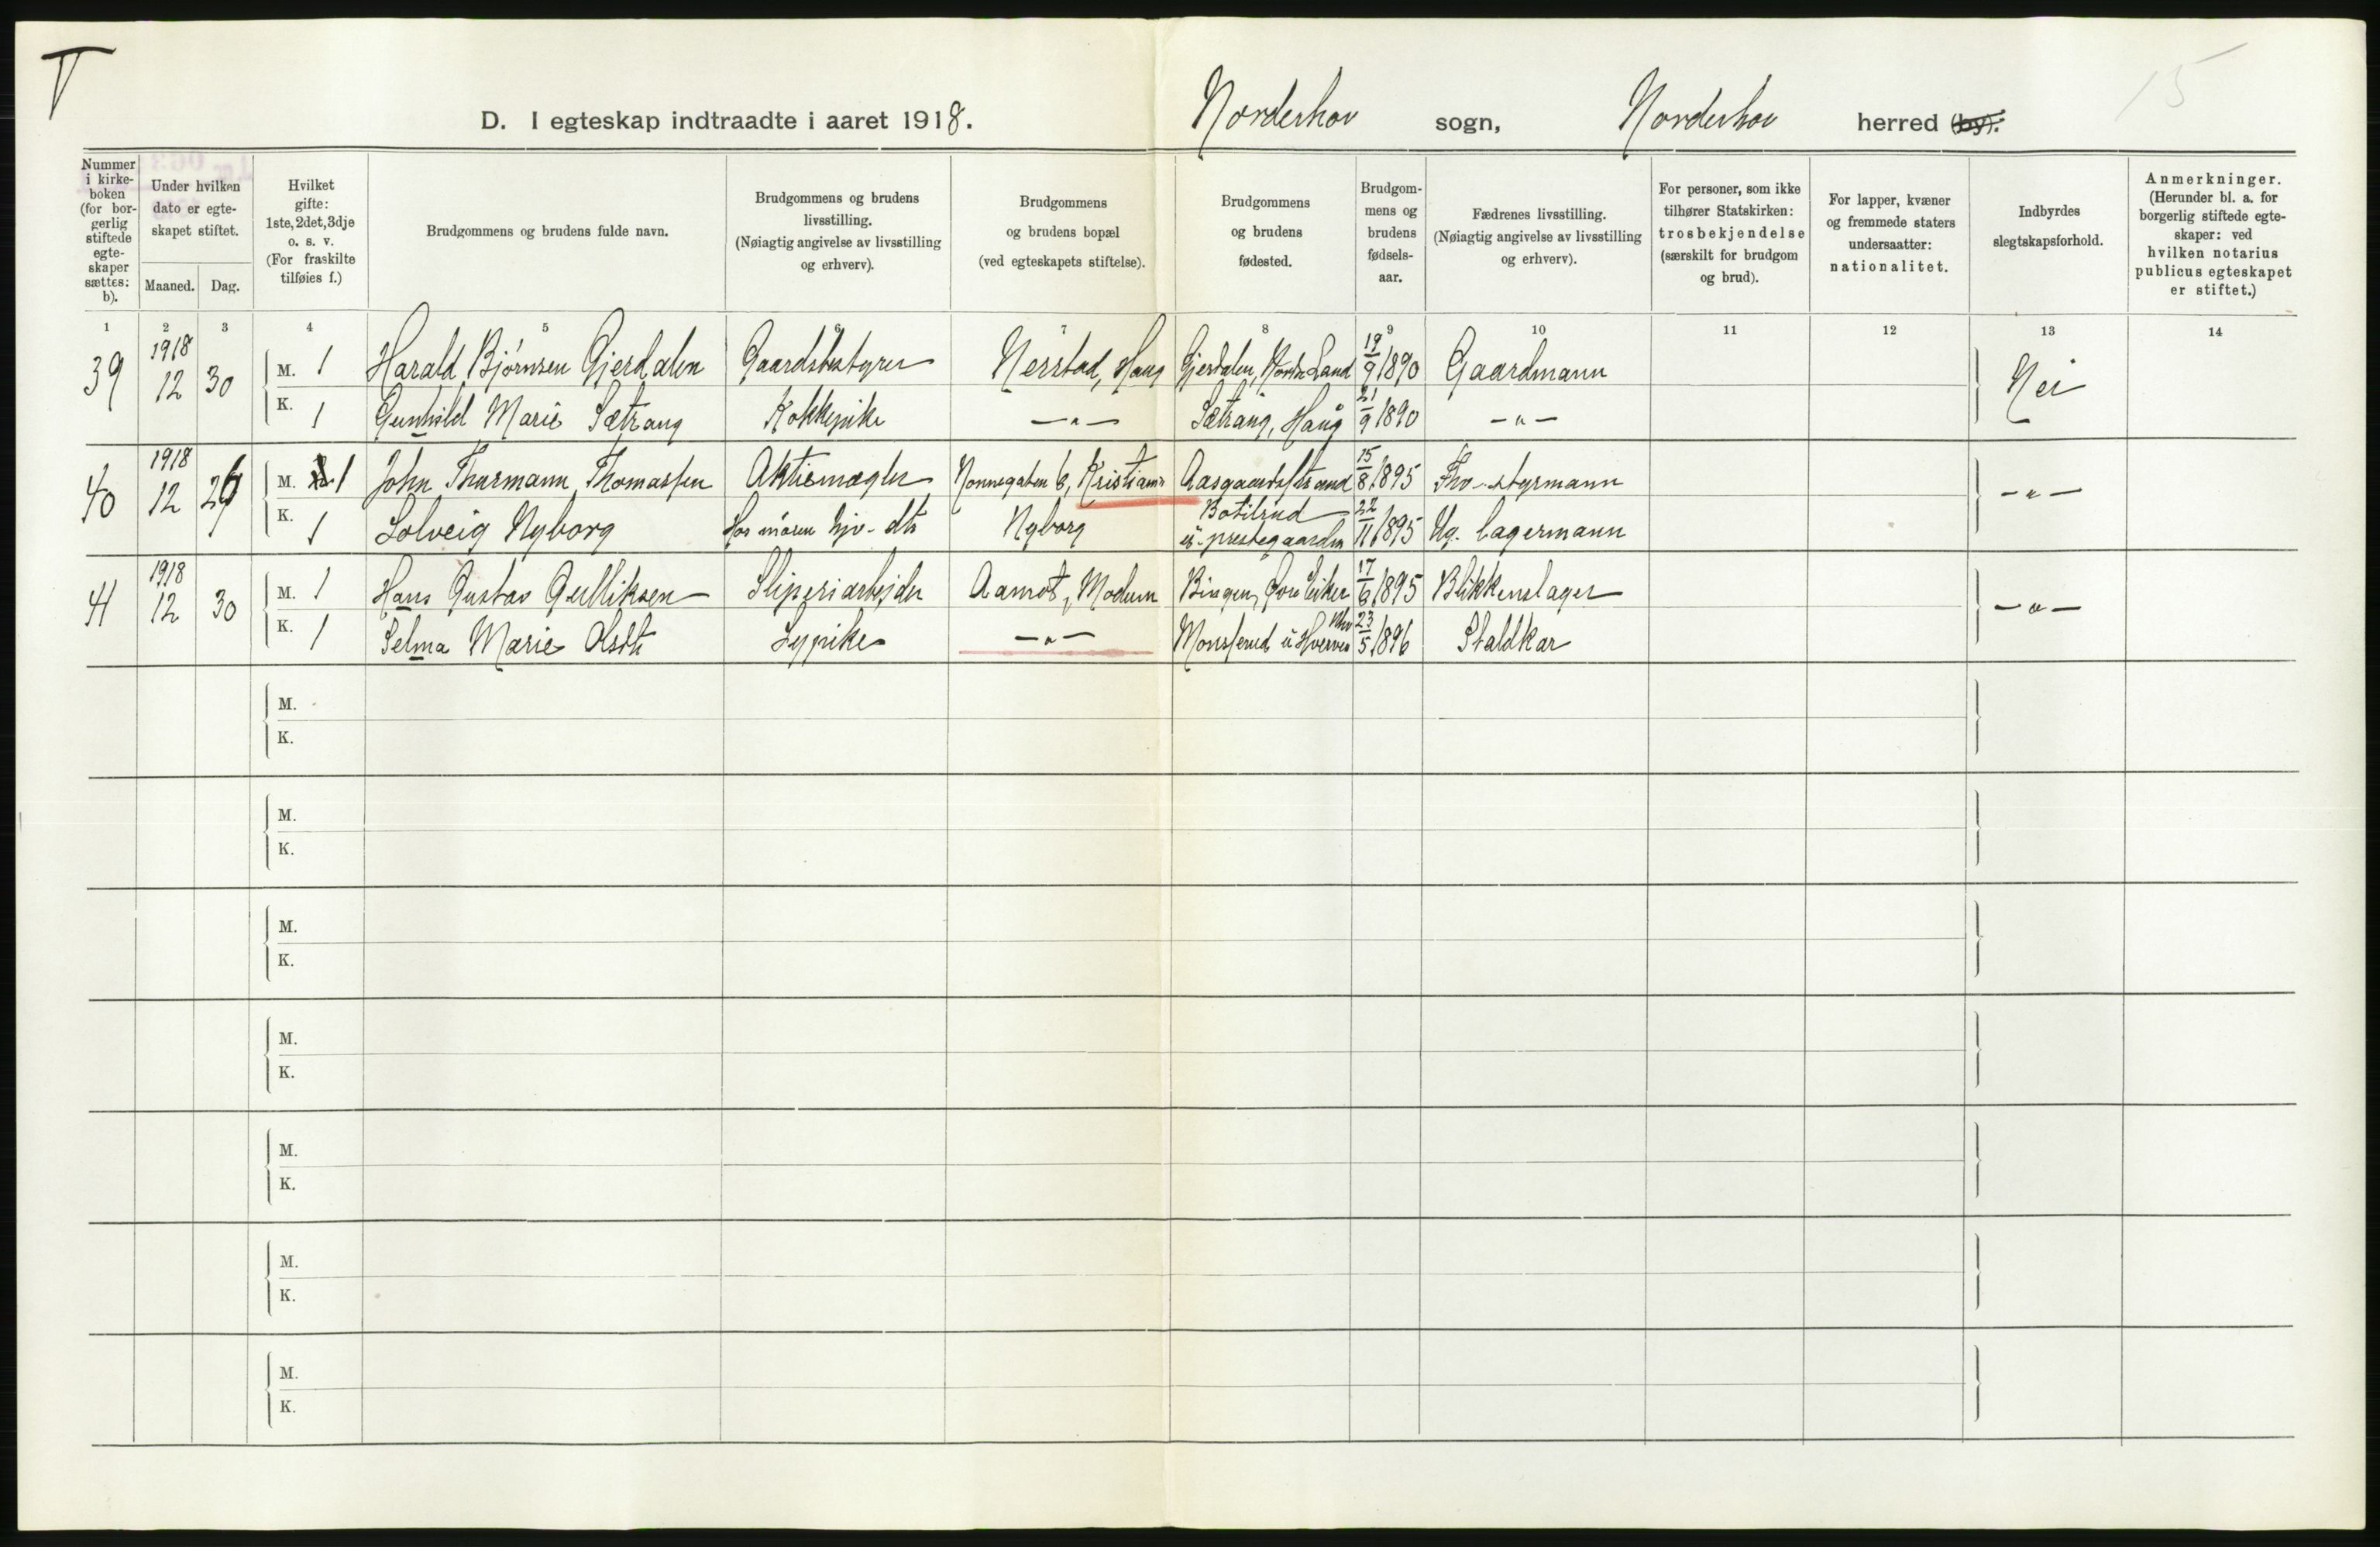 15
D. I egteskap indtraadte i aaret 1918. Norderhov sogn, Norderhov herred (by).
Nummer i kirke-boken (for bor-gerlig stiftede egte-skaper sættes: b).
Under hvilken dato er egte-skapet stiftet.
Maaned. Dag.
Hvilket gifte: 1ste, 2det, 3dje o. s. v. (For fraskilte tilføies f.)
Brudgommens og brudens fulde navn.
Brudgommens og brudens livsstilling. (Nøiagtig angivelse av livsstilling og erhverv).
Brudgommens og brudens bopæl (ved egteskapets stiftelse).
Brudgommens og brudens fødested.
Brudgom-mens og brudens fødsels-aar.
Fædrenes livsstilling. (Nøiagtig angivelse av livsstilling og erhverv).
For personer, som ikke tilhører Statskirken: trosbekjendelse (særskilt for brudgom og brud).
For lapper, kvæner og fremmede staters undersaatter: nationalitet.
Indbyrdes slegtskapsforhold.
Anmerkninger. (Herunder bl. a. for borgerlig stiftede egte-skaper: ved hvilken notarius publicus egteskapet er stiftet.)
1 2 3 4 5 6 7 8 9 10 11 12 13 14
39 1918 12 30 M. 1 Harald Bjørnsen Gjerdalen Gaardsbestyrer Nerstad, Haug Gjerdalen, Nordre Land 19/9 1890 Gaardmann Nei
K. 1 Gunhild Marie Sætrang Kokkepike —"— Sætrang, Haug 21/9 1890 —"—
40 1918 12 26 M. 1 John Thurmann Thomassen Aktiemægler Nonnegaten 6, Kristiania Aasgaardstrand 15/8 1895 Fhv. styrmann —"—
K. 1 Solveig Nyborg Hos moren hjv. dtr Nyborg Botilrud u. prestegaarden 22/11 1895 Ug. lagermann
41 1918 12 30 M. 1 Hans Gustav Gulliksen Sliperiarbeider Aamot, Modum Bingen, Øvre Eiker 17/6 1895 Blikkenslager —"—
K. 1 Selma Marie Olsdtr Sypike —"— Monserud u. Hverven 23/5 1896 Staldkar
M.
K.
M.
K.
M.
K.
M.
K.
M.
K.
M.
K.
M.
K.